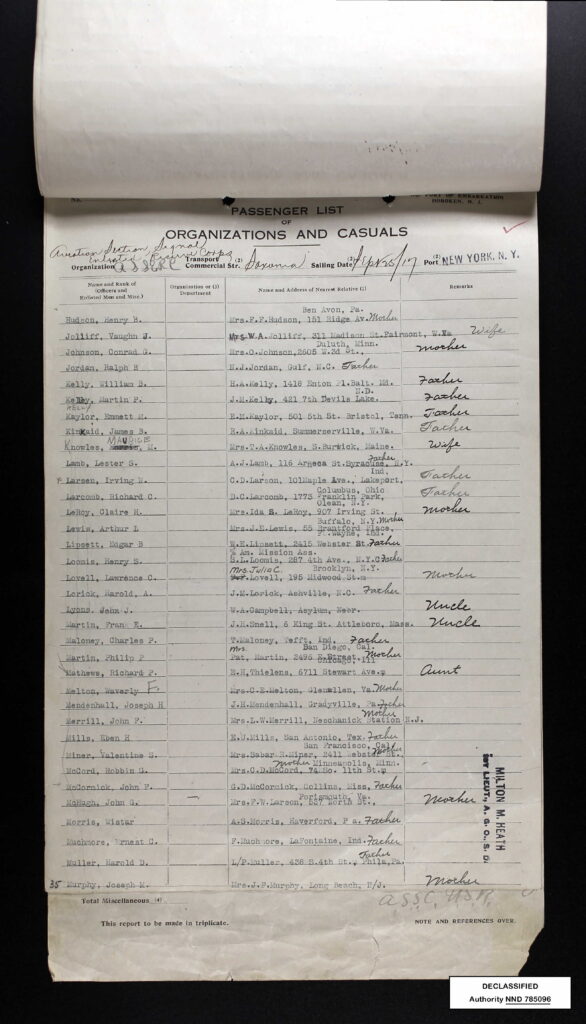 PASSENGER LIST
OF
ORGANIZATIONS AND CASUALS
PORT OF EMBARKATION
HOBOKEN, N. J.
Aviation Section Signal
Enlisted Reserve Corps
Organization A.S.S.E.R.C. Transport Commercial Str. (2) Saxonia Sailing Date (2) Port (2) NEW YORK, N. Y.
Name and Rank of (Officers and Enlisted Men and Misc.) Organization or (3) Department Name and Address of Nearest Relative (1) Remarks
Ben Avon, Pa.
Hudson, Henry B. Mrs.F.F.Hudson, 151 Ridge Av. Mother
Jolliff, Vaughn J. Mrs.W.A.Jolliff, 311 Madison St.Fairmont, W.Va Wife
Duluth, Minn.
Johnson, Conrad G. Mrs.O.Johnson,2605 W.3d St., Mother
Jordan, Ralph B N.J.Jordan, Gulf, N.C. Father
Kelly, William B. H.A.Kelly, 1416 Enton Pl.Balt. Md. Father
N.D.
Kelly, Martin P. J.M.Kelly, 421 7th Devils Lake. Father
KELLY
Kaylor, Emmett M. E.H.Kaylor, 501 5th St. Bristol, Tenn. Father
Kinkaid, James B. R.A.Kinkaid, Summerserville, W.Va. Father
MAURICE
Knowles, M. Mrs.T.A.Knowles, S.Burwick, Maine. Wife
Father
Lamb, Lester G. A.J.Lamb, 116 Arneca St.Syracuse, N.Y.
Ind.
Larsen, Irving N. C.D.Larson, 101Maple Ave., Lakeport, Father
Columbus, Ohio
Larcomb, Richard C. D.C.Larcomb, 1773 Franklin Park, Father
Olean, N.Y.
LeRoy, Claire H. Mrs.Ida S. LeRoy, 907 Irving St. Mother
Buffalo, N.Y. Mother
Lewis, Arthur L Mrs.J.E.Lewis, 55 Brantford Place,
Ft.Wayne, Ind.
Lipsett, Edgar B W.E.Lipsett, 2415 Webster St. Father
% Am. Mission Ass.
Loomis, Henry S. S.L.Loomis, 287 4th Ave., N.Y.C. Father
Mrs. Julia C. Brooklyn, N.Y.
Lovell, Lawrence C. Lovell, 195 Midwood St. Mother
Lorick, Harold, A. J.M.Lorick, Ashville, N.C. Father
Lyons, John J. W.A.Campbell, Asylum, Nebr. Uncle
Martin, Frank E. J.H.Snell, 6 King St. Attleboro, Mass. Uncle
Maloney, Charles P. T.Maloney, Tefft, Ind. Father
Mrs. San Diego, Cal.
Martin, Philip P Pat, Martin, 2496 E.Street Mother
Chicago, Ill
Mathews, Richard P. E.H,Thielens, 6711 Stewart Ave. Aunt
Melton, Waverly F. Mrs.C.E.Melton, Glenallen, Va. Mother
Mendenhall, Joseph H J.H.Mendenhall, Gradyville, Pa Father
Mother
Merrill, John F. Mrs.L.W.Merrill, Neschanick Station N.J.
Mills, Eben H E.U.Mills, San Antonio, Tex. Father
San Francisco, Cal.
Miner, Valentine S. Mrs.Babar R.Miner, 2411 Webster St. Mother
Mother Minneapolis, Minn.
McCord, Robbin G. Mrs.C.D.McCord, 74 So. 11th St.
McCormick, John F. G.D.McCormick, Collins, Miss, Father
Portsmouth, Va.
McHugh, John G. Mrs.F.W.Larson, 537 North St., Mother
Morris, Wistar A.S.Morris, Haverford, P a. Father
Muchmore, Ernest C. F.Muchmore, LaFontaine, Ind. Father
Father
Muller, Harold D. L/P.Muller, 438 S.4th St., Phila,Pa.
35 Murphy, Joseph M. Mrs.J.F.Murphy, Long Beach, N/J. Mother
MILTON M. HEATH
1ST LIEUT., A. G. O., S. D.
Total Miscellaneous (4)
This report to be made in triplicate. NOTE AND REFERENCES OVER.
DECLASSIFIED
Authority NND 785096